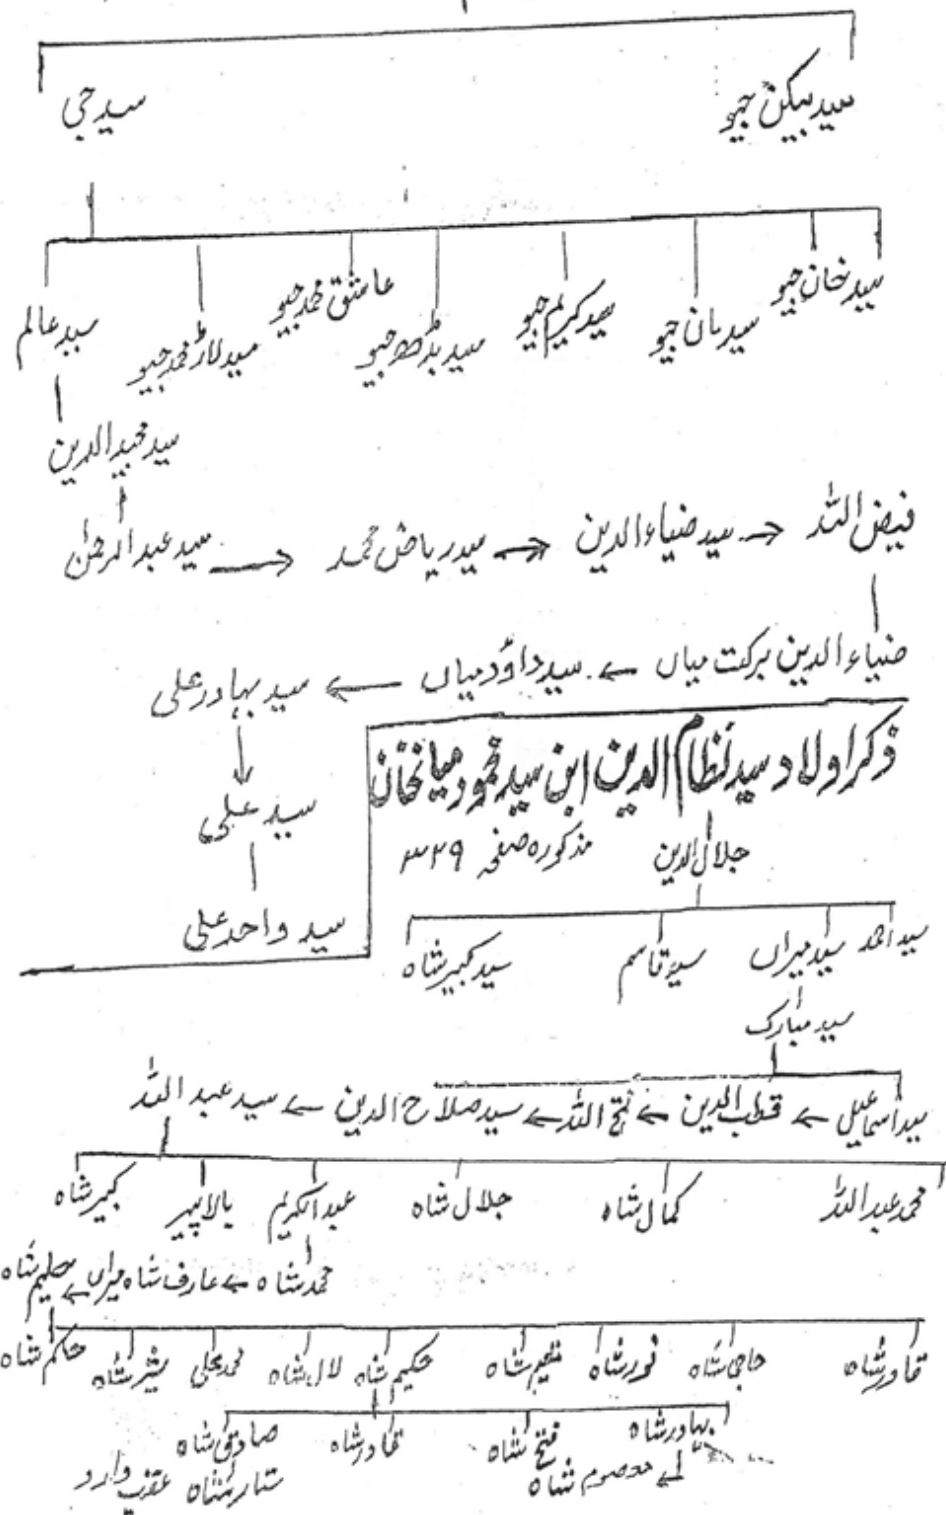 سید بیکن جیو سید جی
سید خان جیو سید مان جیو سید کریم جیو سید بڈھ جیو عاشق محمد جیو سید لاڑ محمد جیو سید عالم
سید مجید الدین
فیض اللہ سید ضیاء الدین سید ریاض محمد سید عبدالرحمٰن
ضیاء الدین برکت میاں سید داؤد میاں سید بہادر علی
ذکر اولاد سید نظام الدین ابن سید محمود میانخان
سید علی
جلال الدین مذکورہ صفحہ ۳۲۹
سید واحد علی
سید احمد سید میراں سید قاسم سید کبیر شاہ
سید مبارک
سید اسماعیل قطب الدین فتح اللہ سید صلاح الدین سید عبداللہ
محمد عبداللہ کمال شاہ جلال شاہ عبدالکریم بالا پیر کبیر شاہ
محمد شاہ عارف شاہ میراں سلیم شاہ
قادر شاہ حاجی شاہ نور شاہ شاہ حکیم شاہ لال شاہ محمد علی شیر شاہ حاکم شاہ
بہادر شاہ فتح شاہ قادر شاہ صادق شاہ
معصوم شاہ ستار شاہ